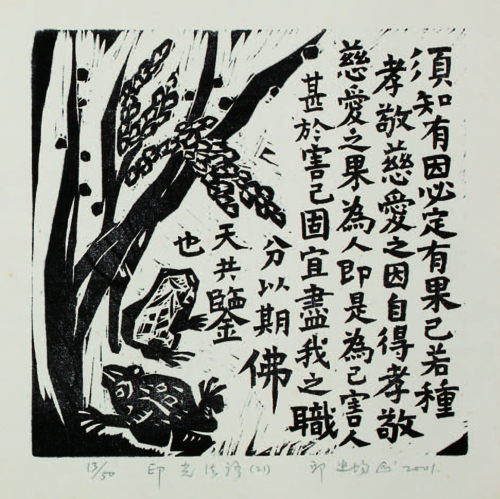 須知有因必定有果己若種
孝敬慈愛之因自得孝敬
慈愛之果為人即是為己害人
甚於害己固宜盡我之職
分以期佛
天共鑒
也
13/50 印光法語(21) 2001.